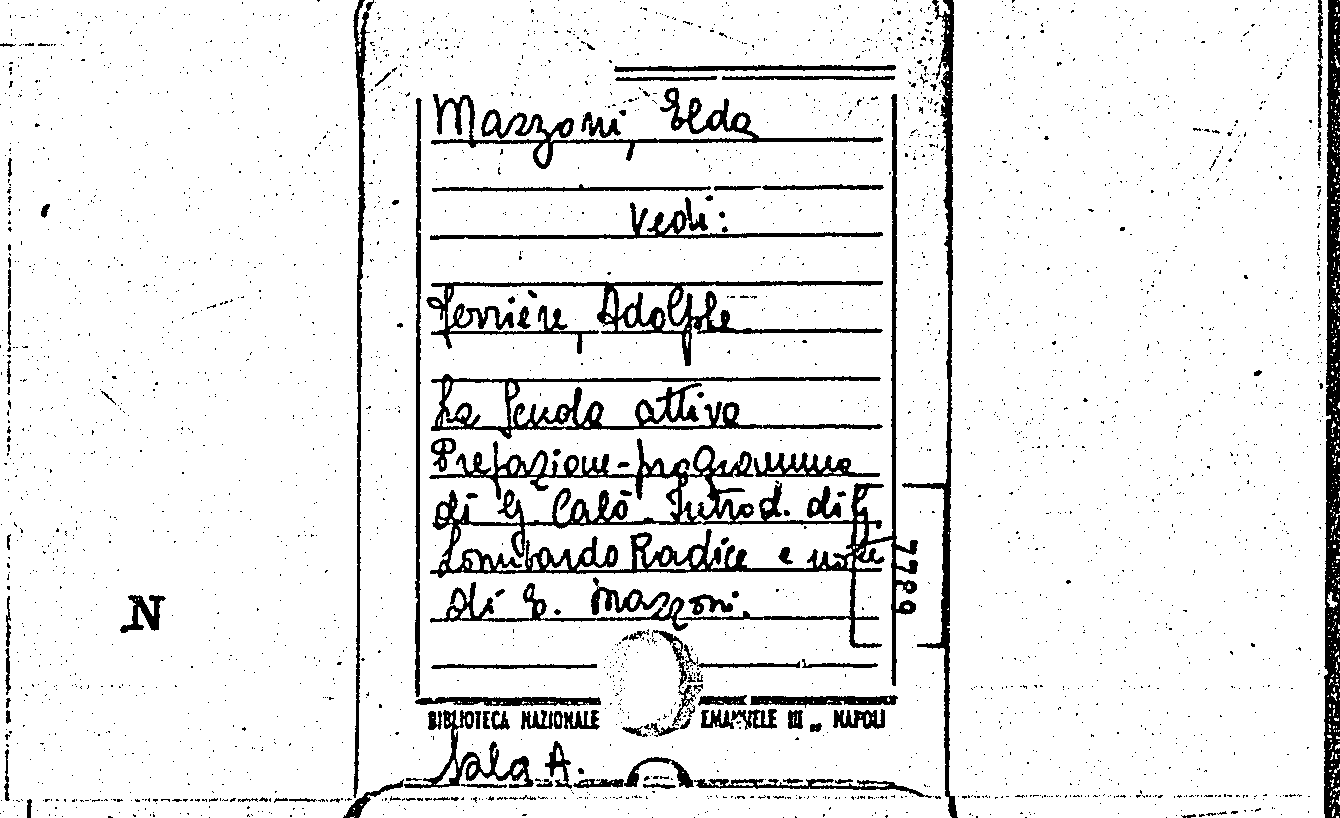 Mazzoni, Elda
Vedi:
Ferrière, Adolphe
La Scuola attiva
Prefazione-programma
di G. Calò. Introd. di G.
Lombardo Radice e note
di E. Mazzoni.
7789
N
BIBLIOTECA NAZIONALE EMANUELE III „ NAPOLI
Sala A.